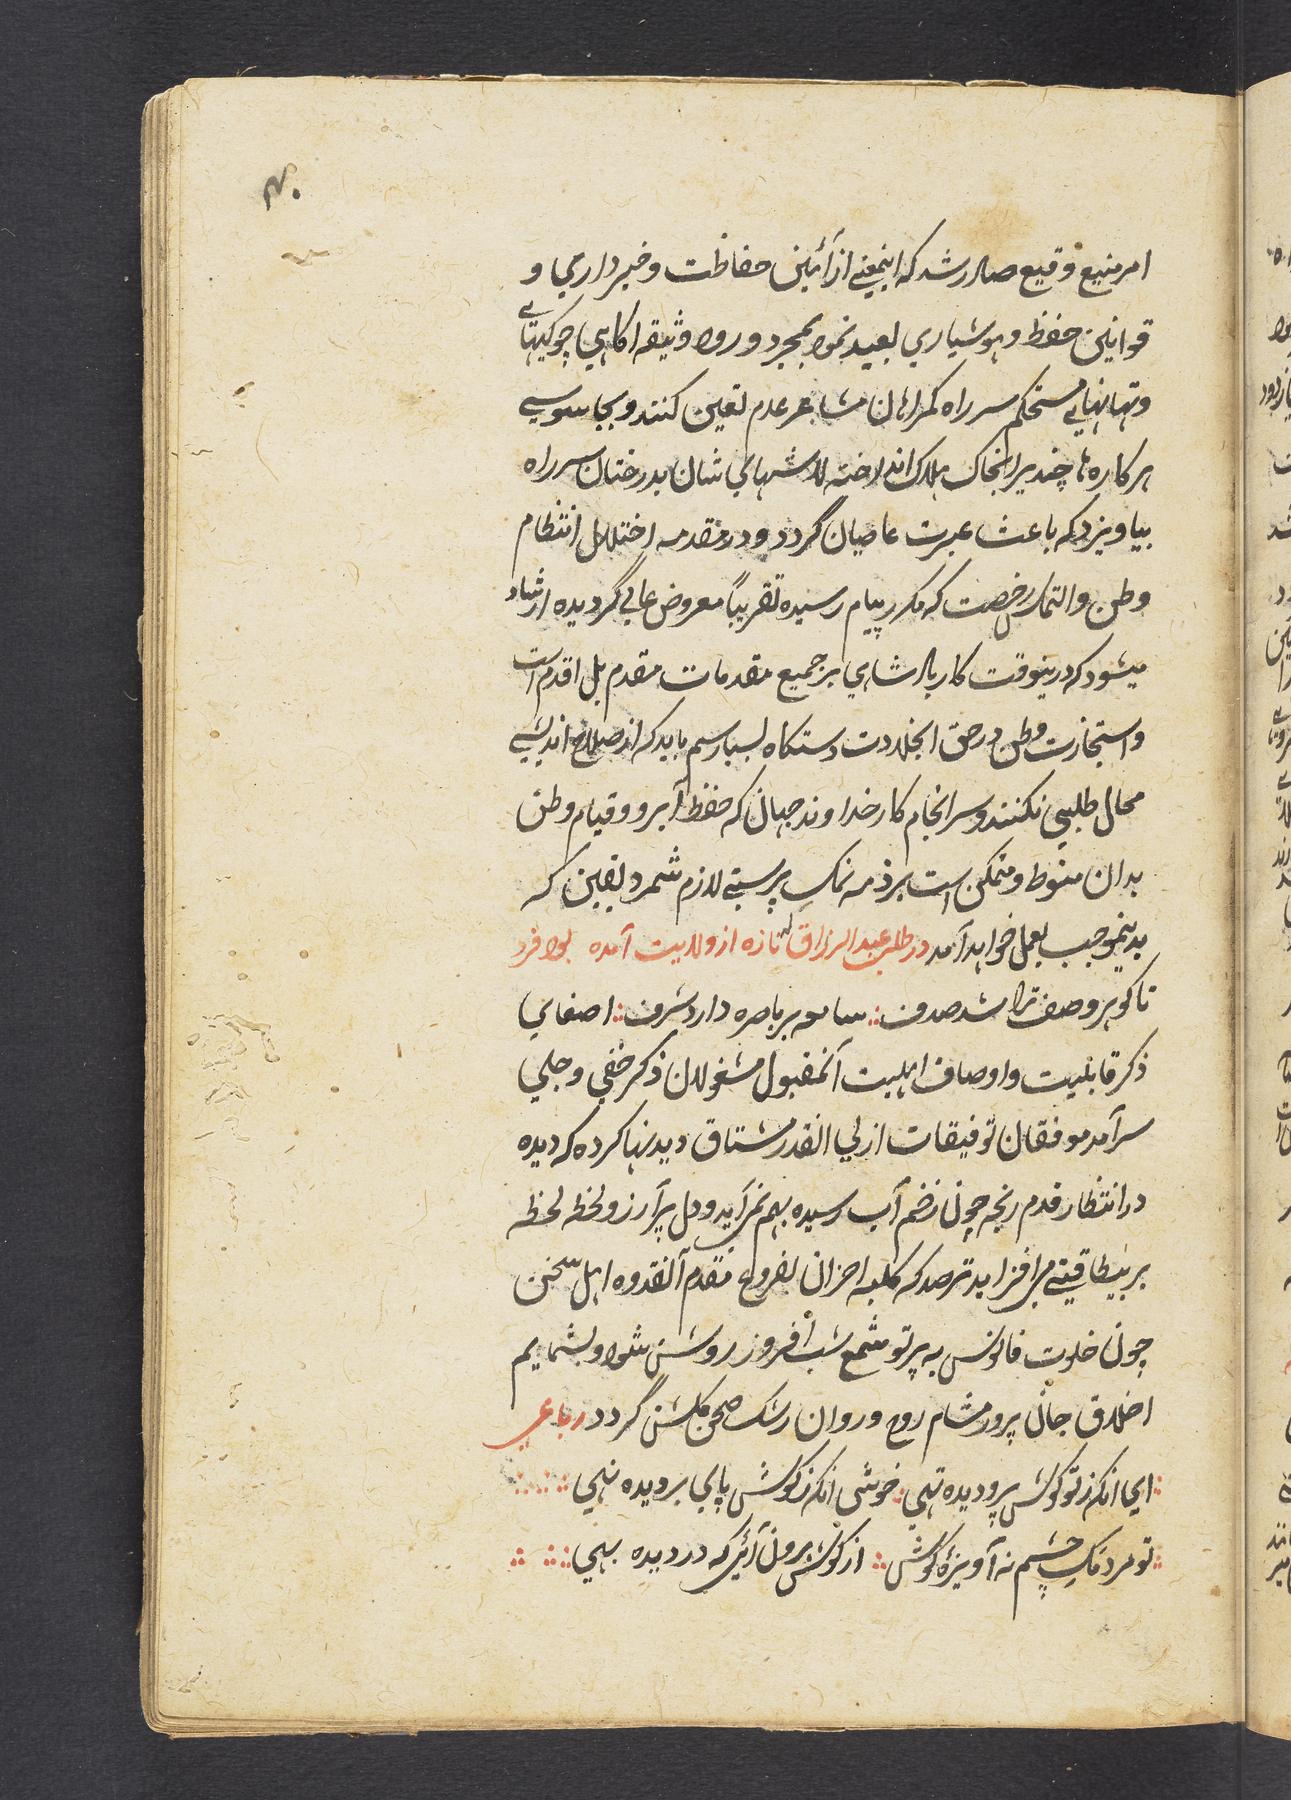 امر منیع وقیع صادر شد که اینمعنی از آئین حفاظت و خبرداری و
قوانین حفظ و هوشیاری بعید نمود بمجرد ورود وثیقه آگاهی چوکیهای
و تهانهای مستحکم سر راه گمراهان عدم تعین کنند و بجاسوسی
هرکارها چندیرا بخاک هلاک انداخته لاشهای شان بدرختان سر راه
بیاویزد که باعث عبرت عاصیان گردد و در مقدمه اختلال انتظام
وطن و التماس رخصت که مکرر پیام رسیده تقریباً معروض عالی گردیده ارشاد
میشود که درینوقت کار پادشاهی بر جمیع مقدمات مقدم بل اقدم است
و استجازت وطن در حق انجلادت دستگاه بسیار سم باید که از صلاح اندیشی
محال طلبی نکنند و سرانجام کار خداوند جهان که حفظ آبرو و قیام وطن
بدان منوط و متمکن است بر ذمه نمک پرستی لازم شمرد یقین که
بدینموجب بعمل خواهد آمد در طلب عبدالرزاق که تازه از ولایت آمده بود فرد
تا گوهر وصف ترا شد صدف سامعه بر باصره دارد شرف اصغای
ذکر قابلیت و اوصاف اهلیت آنمقبول مشغولان ذکر خفی و جلی
سرآمد موفقان توفیقات ازلی انقدر مشتاق دیدنها کرده که دیده
در انتظار قدم رنجه چون زخم آب رسیده بهم نمی آید و دل پر آرزو لحظه لحظه
بر بیطاقتی می افزاید مترصد که کلبه احزان بفروغ مقدم آنقدوه اهل سخن
چون خلوت فانوس به پرتو شمع شب افروز روشن شود و بشمایم
اخلاق جان پرور مشام روح و روان رشک صحن گلشن گردد رباعی
ای آنکه ز تو گوش پر و دیده تهی خوش آنکه ز گوش پای بر دیده نهی
تو مردمک چشم نه آویزه گوش از گوش برون آئی که در دیده بهی